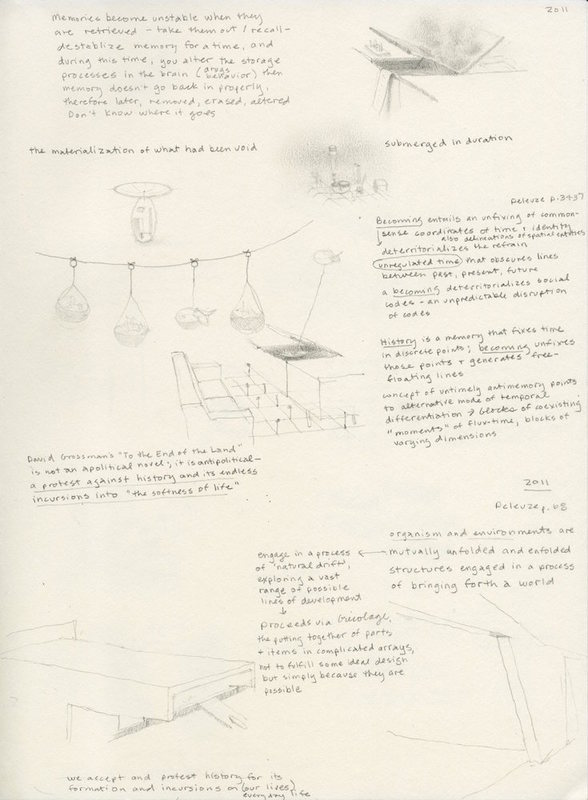 2011
Memories become unstable when they
are retrieved - take them out / recall -
destablize memory for a time, and
during this time, you alter the storage
processes in the brain (drugs, behavior) then
memory doesn't go back in properly,
therefore later, removed, erased, altered
Don't know where it goes
the materialization of what had been void
submerged in duration
Deleuze p. 34-37
Becoming entails an unfixing of common-
sense coordinates of time + identity
also delineations of spatial entities
deterritorializes the refrain
unregulated time that obscures lines
between past, present, future
a becoming deterritorializes social
codes - an unpredictable disruption
of codes
History is a memory that fixes time
in discrete points; becoming unfixes
those points + generates free-
floating lines
concept of untimely antimemory points
to alternative mode of temporal
differentiation → blocks of coexisting
"moments" of flux-time, blocks of
varying dimensions
David Grossman's "To the End of the Land"
is not an apolitical novel; it is antipolitical -
a protest against history and its endless
incursions into "the softness of life"
2011
Deleuze p. 68
organism and environments are
mutually unfolded and enfolded
structures engaged in a process
of bringing forth a world
engage in a process
of "natural drift",
exploring a vast
range of possible
lines of development
proceeds via bricolage,
the putting together of parts
+ items in complicated arrays,
not to fulfill some ideal design
but simply because they are
possible
we accept and protest history for its
formation and incursions on (our lives)
everyday life